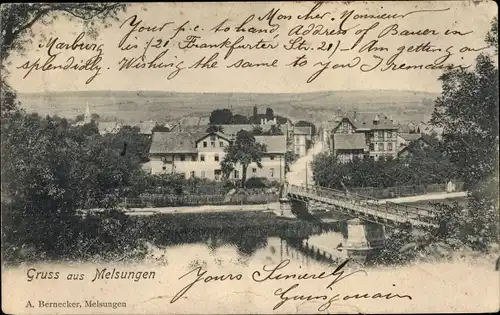 Mon cher Monsieur
Your p.c. to hand. Address of Bauer en
Marburg is (21 Frankfurter Str. 21) I am getting on
splendidly. Wishing the same to you I remain
Gruss aus Melsungen
Yours Sincerely
A. Bernecker, Melsungen